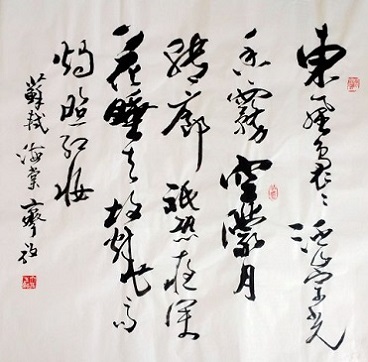 東風裊〻泛崇光
香霧空濛月
轉廊祗恐夜深
花睡去故燒高
燭照紅妝
蘇軾海棠